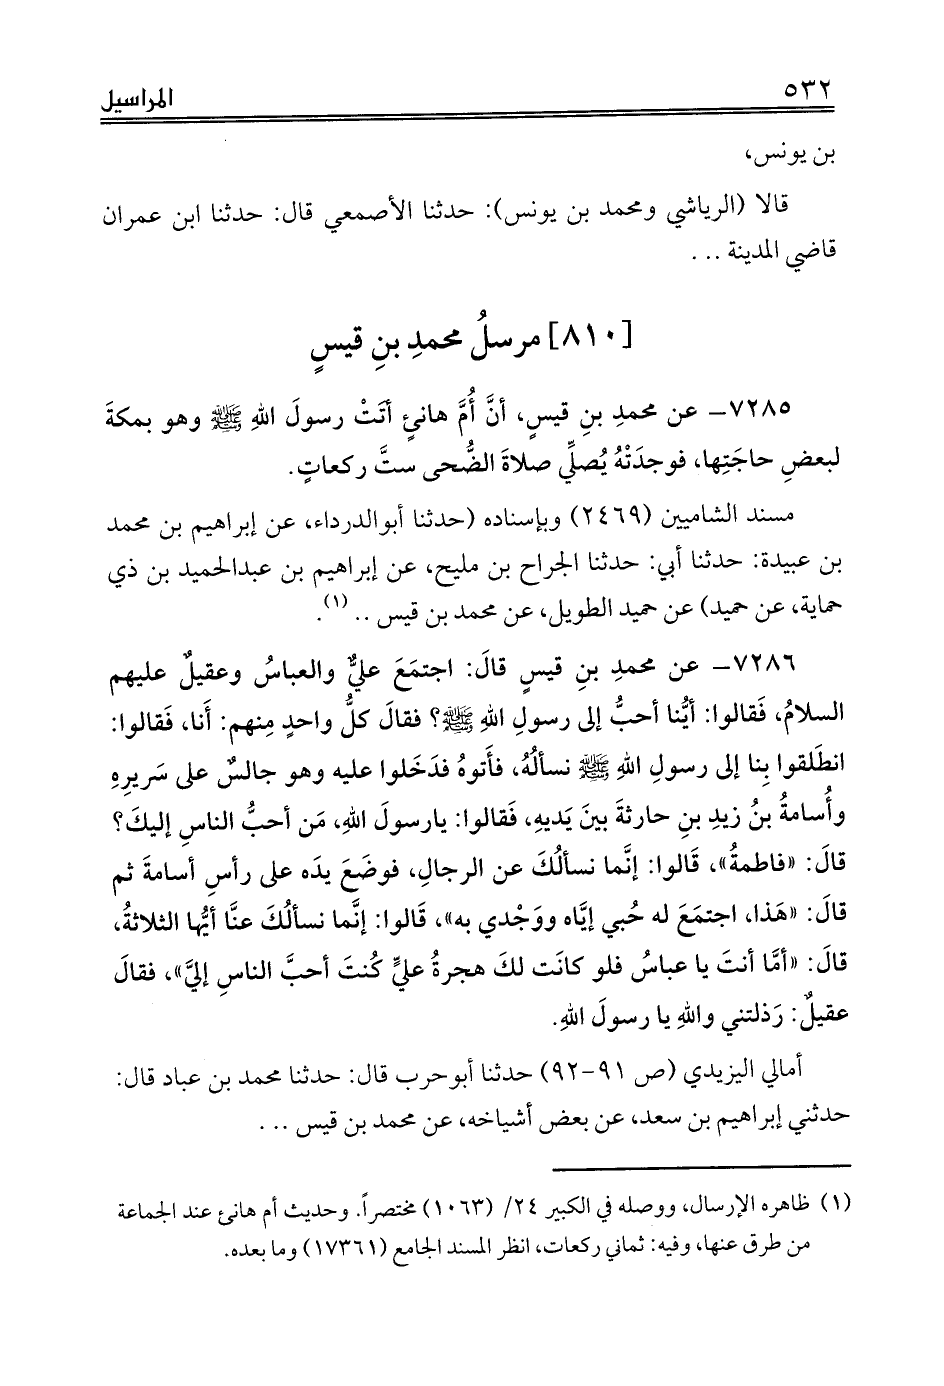 ٥٣٢
المراسيل
بن يونس،
قالا (الرياشي ومحمد بن يونس): حدثنا الأصمعي قال: حدثنا ابن عمران
قاضي المدينة ...
[٨١٠] مرسلُ محمدِ بنِ قيسٍ
٧٢٨٥- عن محمدِ بنِ قيسٍ، أنَّ أُمَّ هانئٍ أتَتْ رسولَ اللهِ ﷺ وهو بمكةَ
لبعضِ حاجَتِها، فوجدَتْهُ يُصلِّي صلاةَ الضُّحى ستَّ ركعاتٍ.
مسند الشاميين (٢٤٦٩) وبإسناده (حدثنا أبوالدرداء، عن إبراهيم بن محمد
بن عبيدة: حدثنا أبي: حدثنا الجراح بن مليح، عن إبراهيم بن عبدالحميد بن ذي
حماية، عن حميد) عن حميد الطويل، عن محمد بن قيس .. (١).
٧٢٨٦- عن محمدِ بنِ قيسٍ قالَ: اجتمَعَ عليٌّ والعباسُ وعقيلٌ عليهم
السلامُ، فَقالوا: أيُّنا أحبُّ إلى رسولِ اللهِ ﷺ؟ فقالَ كلُّ واحدٍ مِنهم: أَنا، فَقالوا:
انطَلقوا بِنا إلى رسولِ اللهِ ﷺ نسألُهُ، فأَتوهُ فدَخَلوا عليه وهو جالسٌ على سَريرِهِ
وأُسامةُ بنُ زيدِ بنِ حارثةَ بينَ يَديهِ، فَقالوا: يارسولَ اللهِ، مَن أحبُّ الناسِ إليكَ؟
قالَ: «فاطمةُ»، قَالوا: إنَّما نسألُكَ عن الرجالِ، فوضَعَ يدَه على رأسِ أسامةَ ثم
قالَ: «هَذا، اجتمَعَ له حُبي إيَّاه ووَجْدي به»، قَالوا: إنَّما نسألُكَ عنَّا أيُّها الثلاثةُ،
قالَ: «أمَّا أنتَ يا عباسُ فلو كانَت لكَ هجرةُ عليٍّ كُنتَ أحبَّ الناسِ إليَّ»، فقالَ
عقيلٌ: رَذلتني واللهِ يا رسولَ اللهِ.
أمالي اليزيدي (ص ٩١-٩٢) حدثنا أبوحرب قال: حدثنا محمد بن عباد قال:
حدثني إبراهيم بن سعد، عن بعض أشياخه، عن محمد بن قيس ...
(١) ظاهره الإرسال، ووصله في الكبير ٢٤/ (١٠٦٣) مختصراً. وحديث أم هانئ عند الجماعة
من طرق عنها، وفيه: ثماني ركعات، انظر المسند الجامع (١٧٣٦١) وما بعده.